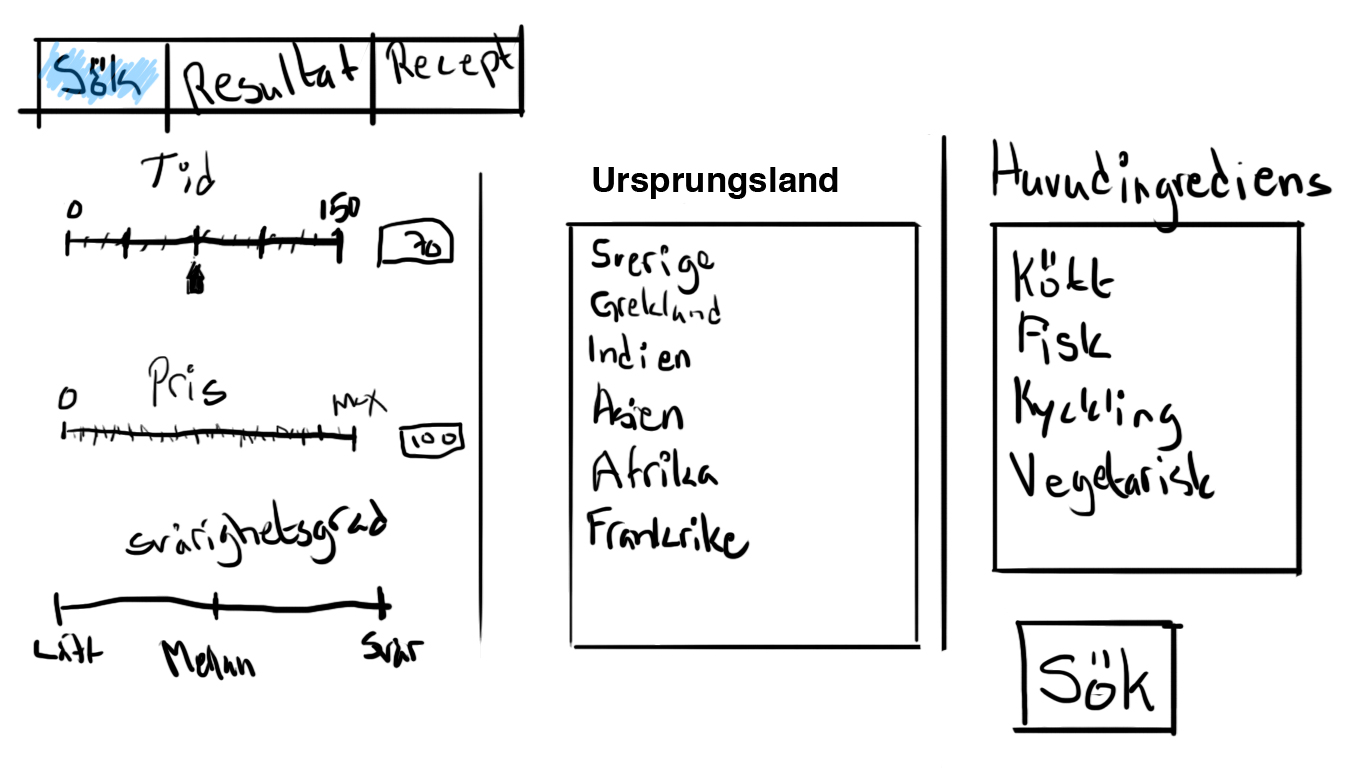 Sök Resultat Recept
Tid
0 150
70
Pris
0 max
100
svårighetsgrad
Lätt Mellan Svår
Ursprungsland
Sverige
Grekland
Indien
Asien
Afrika
Frankrike
Huvudingrediens
Kött
Fisk
Kyckling
Vegetarisk
Sök